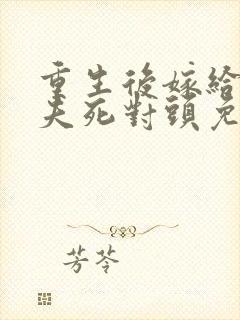 重生後嫁給
夫死對頭免
芳苓